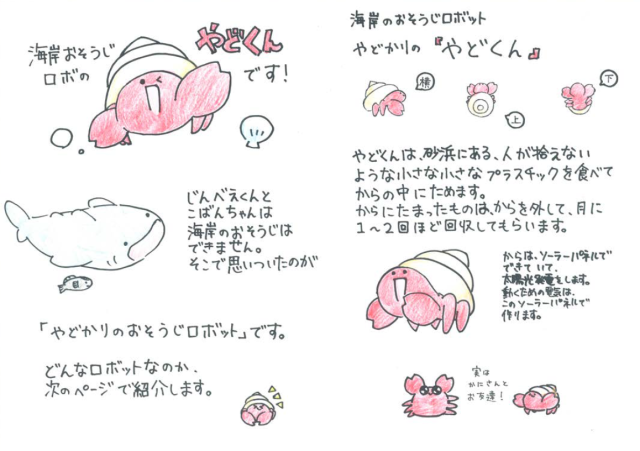 海岸おそうじ
ロボの
やどくん
です!
じんべえくんと
こばんちゃんは
海岸のおそうじは
できません。
そこで思いついたのが
「やどかりのおそうじロボット」です。
どんなロボットなのか、
次のページで紹介します。
海岸のおそうじロボット
やどかりの『やどくん』
横
上
下
やどくんは、砂浜にある、人が拾えない
ような小さな小さなプラスチックを食べて
からの中にためます。
からにたまったものは、からを外して、月に
1~2回ほど回収してもらいます。
からは、ソーラーパネルで
できていて、
太陽光発電をします。
動くための電気は、
このソーラーパネルで
作ります。
実は
かにさんと
お友達!